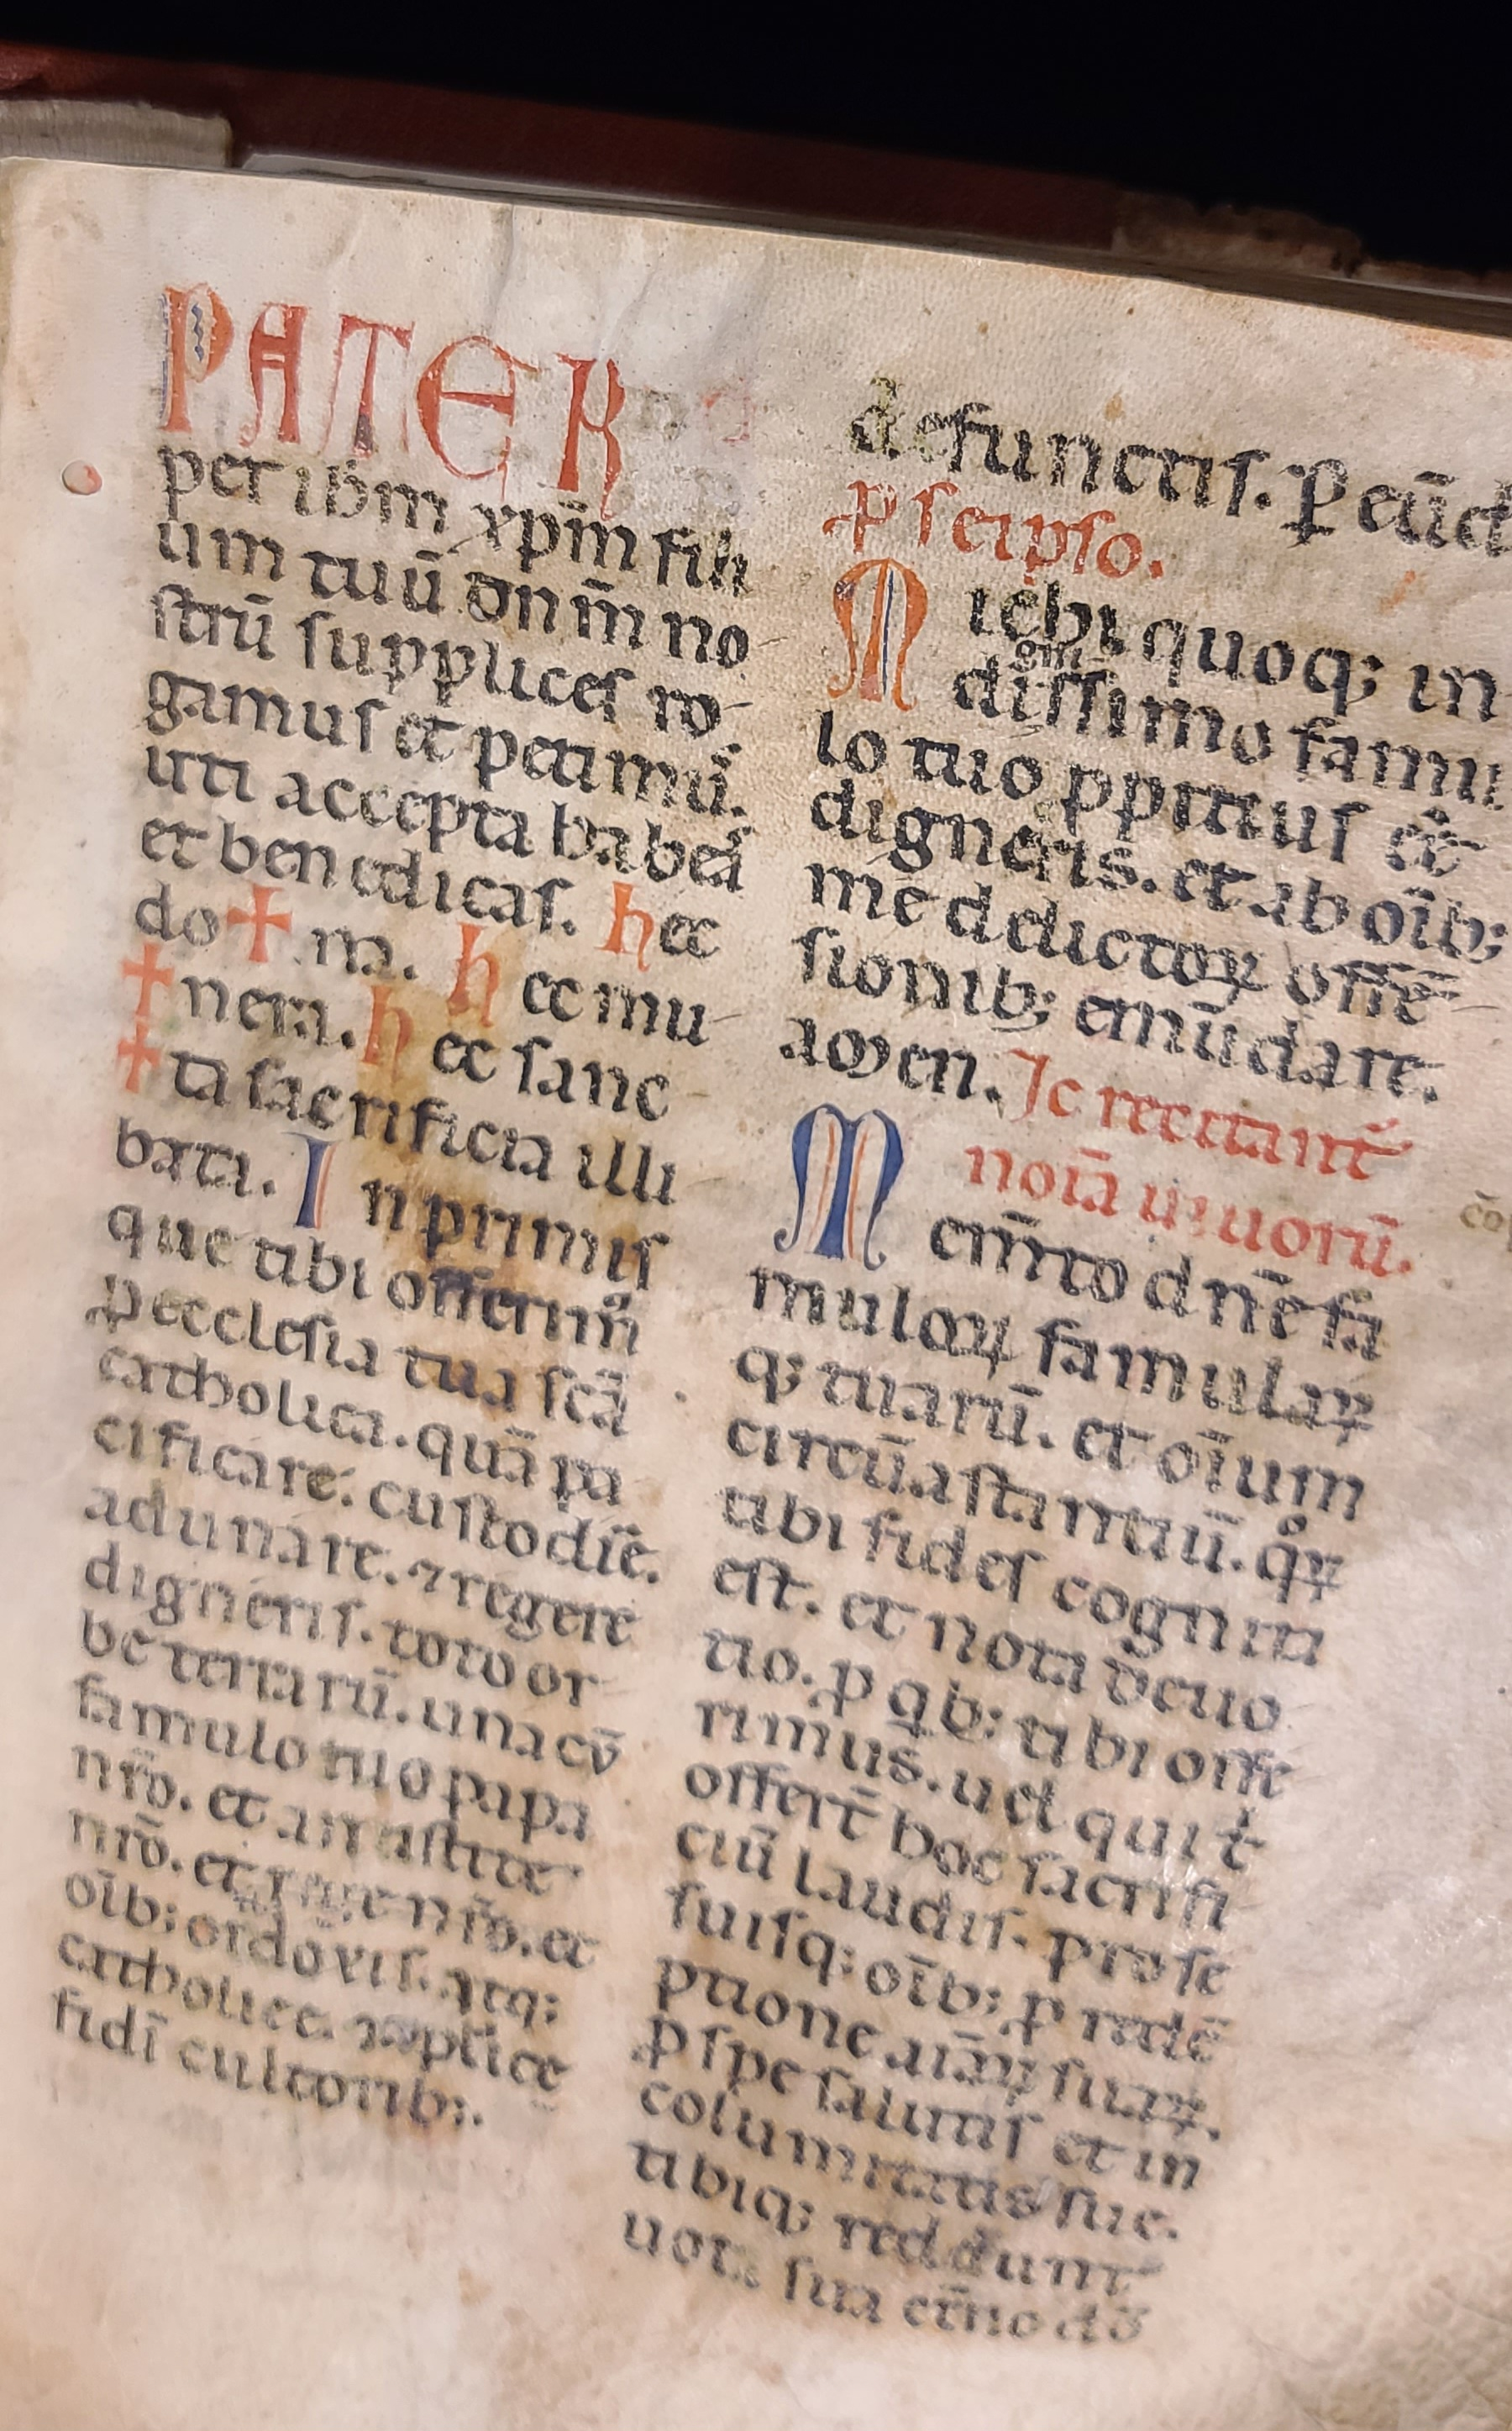 PATER
per ih̄m xp̄m fili
um tuū dn̄m̄ no
strū supplices ro
gamus et petimus.
uti accepta habeas
et benedicas. hec
do+na. hec mu
+nera. hec sanc
+ta sacrificia illi
bata. In primis
que tibi offerim
p ecclesia tua scā
catholica. quā pa
cificare. custodīe.
adunare. ⁊ regere
digneris. toto or
be terrarū. una cū
famulo tuo papa
nr̄o. et antistite
nr̄o. et rege nr̄o. et
oīb; ordoxis. atq;
catholice. aplice
fidī cultorib;.
defunctis. p eūd
p seipso.
Michi quoq; in
dissimo famu
lo tuo ppitius eē
digneris. et ab oīb;
me delictoꝝ offē
sionib; emūdare.
amen. Ic recitant̄
noīa uiuorū.
Mem̄to dn̄e fa
muloꝝ famulaꝝ
q; tuarū. et oīum
circūastantiū. qꝝ
tibi fides cognita
est. et nota deuo
tio. p qb; tibi offe
rimus. uel qui t
offert̄ hoc sacrifi
ciū laudis. pro se
suisq; oīb; p redē
ptione aīaꝝ suaꝝ.
p spe salutis et in
columitatis sue.
tibiq; reddunt
uota sua et̄no dō